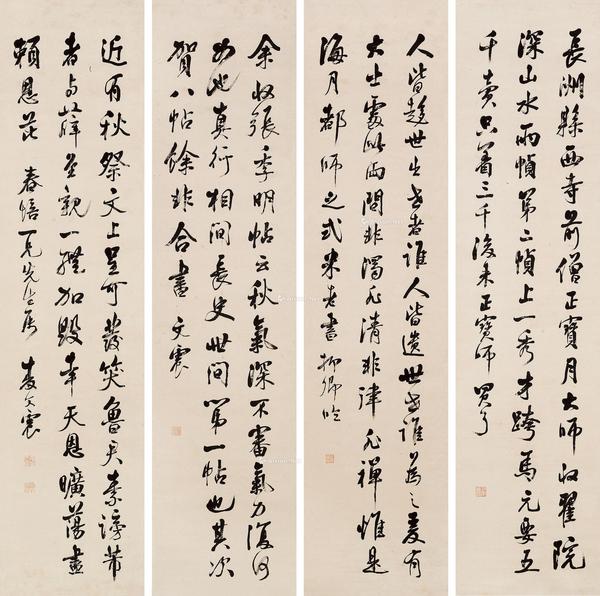 長湖縣西寺前僧正寶月大師收翟院
深山水兩幀第二幀上一秀才跨馬元要五
千賣只著三千後來正寶師買了
人皆趨世出世者誰人皆遺世世誰為之爰有
大士處此兩間非濁非清非律非禪惟是
海月都師之式米老書
余收張季明帖云秋氣深不審氣力復何
如也真行相間長史世間第一帖也其次
賀八帖餘非合書 文震
近有秋祭文上呈可發笑魯君素謗芾
者與江舜至親一體加毀幸天恩曠蕩盡
賴恩芘 春 先生 文震